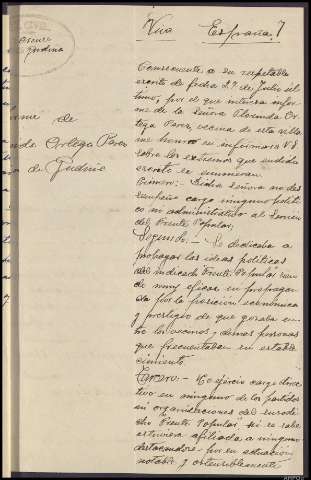 ¡Viva España!
Consecuente a su respetable
escrito de fecha 27 de Julio úl
timo, por el que interesa infor
me de la Señora Florinda Or
tega Perez, vecina de esta villa
me honro en informar a V.S.
sobre los extremos que en dicho
escrito se enumeran.
Primero:- Dicha Señora no des
empeño cargo ninguno políti
co ni administrativo al servicio
del Frente Popular.
Segundo:- Se dedicaba a
propagar las ideas politicas
del indicado Frente Popular sien
do muy eficaz su propagan
da por la posición económica
y prestigio de que gozaba en
tre los vecinos y demas personas
que frecuentaban su estable
cimiento.
Tercero:- No ejercio cargo direc
tivo en ninguno de los partidos
ni organizaciones del susodi
cho Frente Popular ni se sabe
estuviera afiliada a ninguno
destacandose por su actuación
notable y ostensiblemente
me de
nda Ortega Perez
de Gudiña
Gudiña